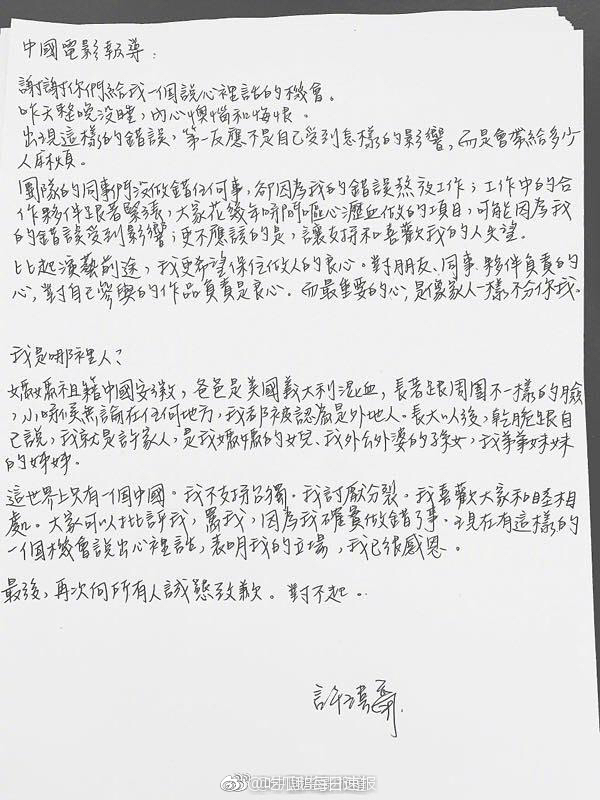 中國電影報導：
謝謝你們給我一個說心裡話的機會。
昨天整晚沒睡，內心懊惱和悔恨。
出現這樣的錯誤，第一反應不是自己受到怎樣的影響，而是會帶給多少
人麻煩。
團隊的同事們沒做錯任何事，卻因為我的錯誤熬夜工作；工作中的合
作夥伴跟著緊張，大家花幾年時間嘔心瀝血做的項目，可能因為我
的錯誤受到影響；更不應該的是，讓支持和喜歡我的人失望。
比起演藝前途，我更希望保住做人的良心。對朋友、同事、夥伴負責的
心，對自己參與的作品負責是良心。而最重要的心，是像家人一樣不分你我。
我是哪裡人？
媽媽祖籍中國安徽，爸爸是美國義大利混血，長著跟周圍不一樣的臉
，小時候無論在任何地方，我都被認為是外地人。長大以後，乾脆跟自
己說，我就是許家人，是我媽媽的女兒、我外公外婆的孫女，我弟弟妹妹
的姊姊。
這世界上只有一個中國。我不支持台獨。我討厭分裂。我喜歡大家和睦相
處。大家可以批評我，罵我，因為我確實做錯了事。現在有這樣的
一個機會說出心裡話，表明我的立場，我已很感恩。
最後，再次向所有人誠懇致歉。對不起。
許瑋甯
每日速报